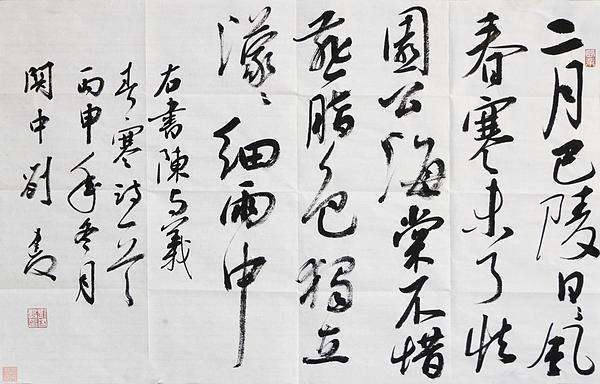 二月巴陵日〻風
春寒未了怯
園公海棠不惜
燕脂色獨立
濛〻細雨中
右書陳与義
春寒詩一首
丙申年冬月
関中劉